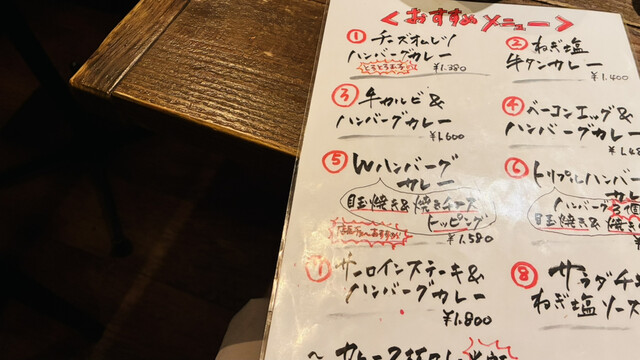 ＜おすすめメニュー＞
① チーズオムレツ
ハンバーグカレー
¥1.380
② ねぎ塩
牛タンカレー
¥1.400
③ 牛カルビ&
ハンバーグカレー
¥1.600
④ ベーコンエッグ&
ハンバーグカレー
¥1.48
⑤ Wハンバーグ
カレー
目玉焼き&焼きチーズ
トッピング
¥1.580
⑥ トリプルハンバー
カレー
ハンバーグ3個
目玉焼き&焼き
⑦ サーロインステーキ&
ハンバーグカレー
¥1.800
⑧ サラダチ
ねぎ塩ソース